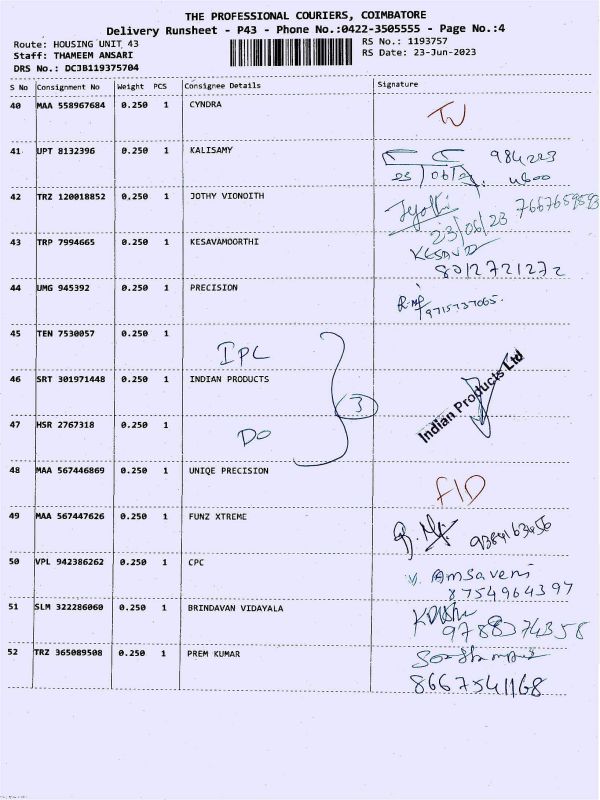 THE PROFESSIONAL COURIERS, COIMBATORE
Delivery Runsheet - P43 - Phone No.:0422-3505555 - Page No.:4
Route: HOUSING UNIT 43 RS No.: 1193757
Staff: THAMEEM ANSARI RS Date: 23-Jun-2023
DRS No.: DCJB119375704
S No Consignment No Weight PCS Consignee Details Signature
40 MAA 558967684 0.250 1 CYNDRA
41 UPT 8132396 0.250 1 KALISAMY
23/06/23
42 TRZ 120018852 0.250 1 JOTHY VIONOITH Jyothi 7667659593
23/06/23
43 TRP 7994665 0.250 1 KESAVAMOORTHI
8012721272
44 UMG 945392 0.250 1 PRECISION
9715737065.
45 TEN 7530057 0.250 1
IPL
46 SRT 301971448 0.250 1 INDIAN PRODUCTS Indian Products Ltd
3
47 HSR 2767318 0.250 1
DO
48 MAA 567446869 0.250 1 UNIQE PRECISION
49 MAA 567447626 0.250 1 FUNZ XTREME
50 VPL 942386262 0.250 1 CPC V. Amsaveni
8754964397
51 SLM 322286060 0.250 1 BRINDAVAN VIDAYALA
9788374358
52 TRZ 365089508 0.250 1 PREM KUMAR
8667541168